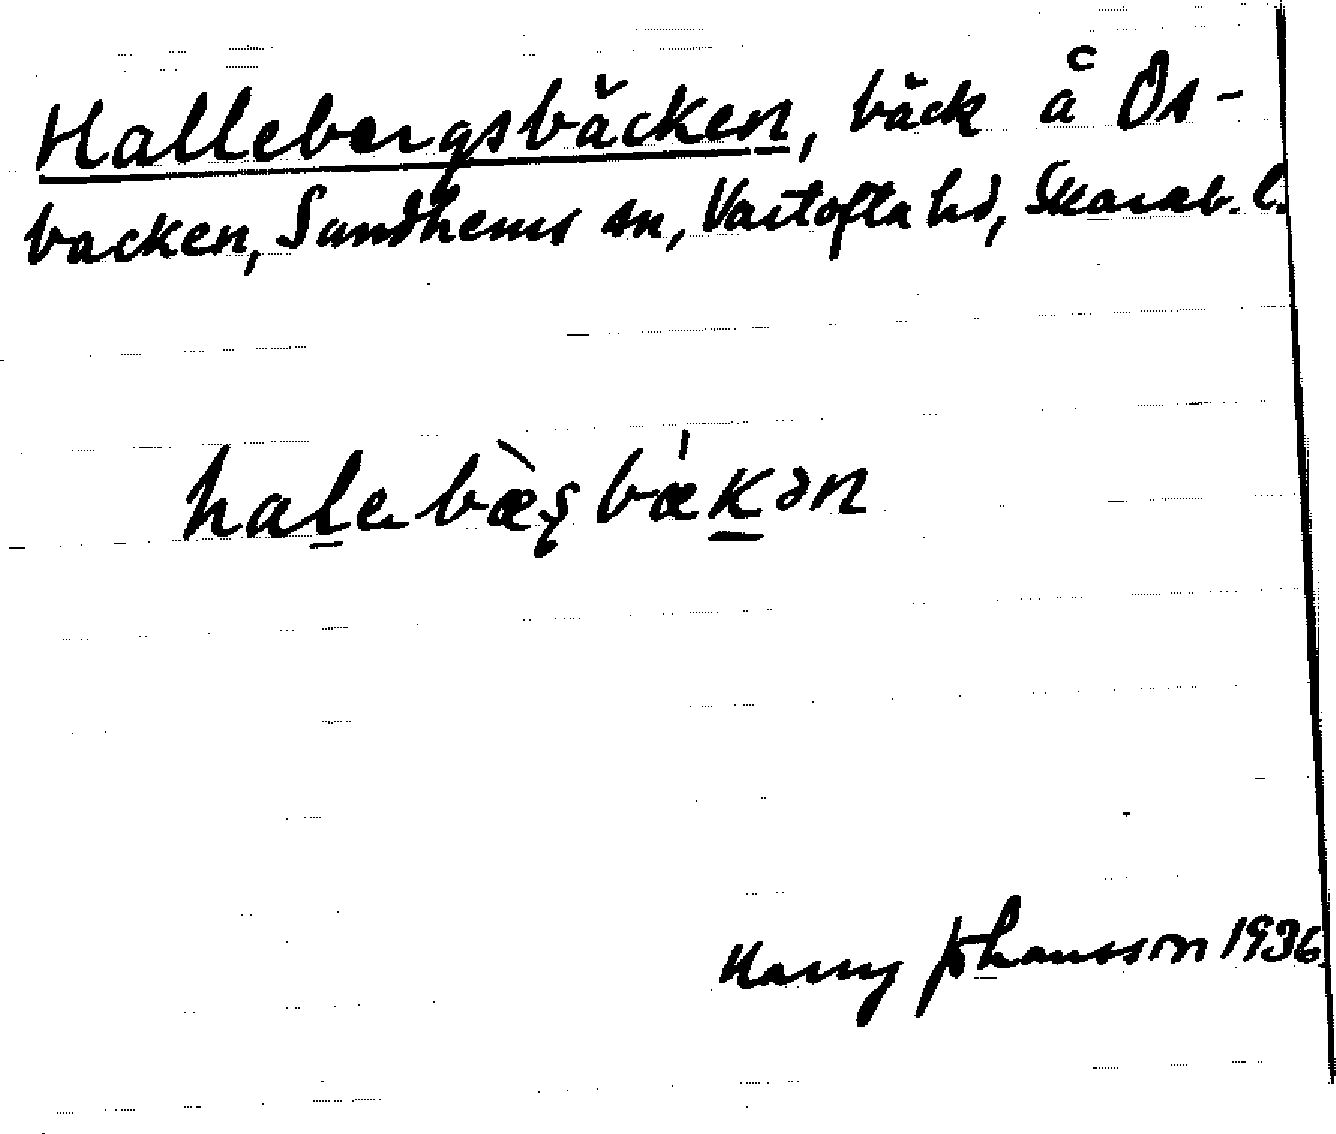 Hallebergsbäcken, bäck å Ds-
backen, Sandhems sn, Vartofta hd, Skarab. l.
halebæ̀ʂbǽkən
Harry Johansson 1936.